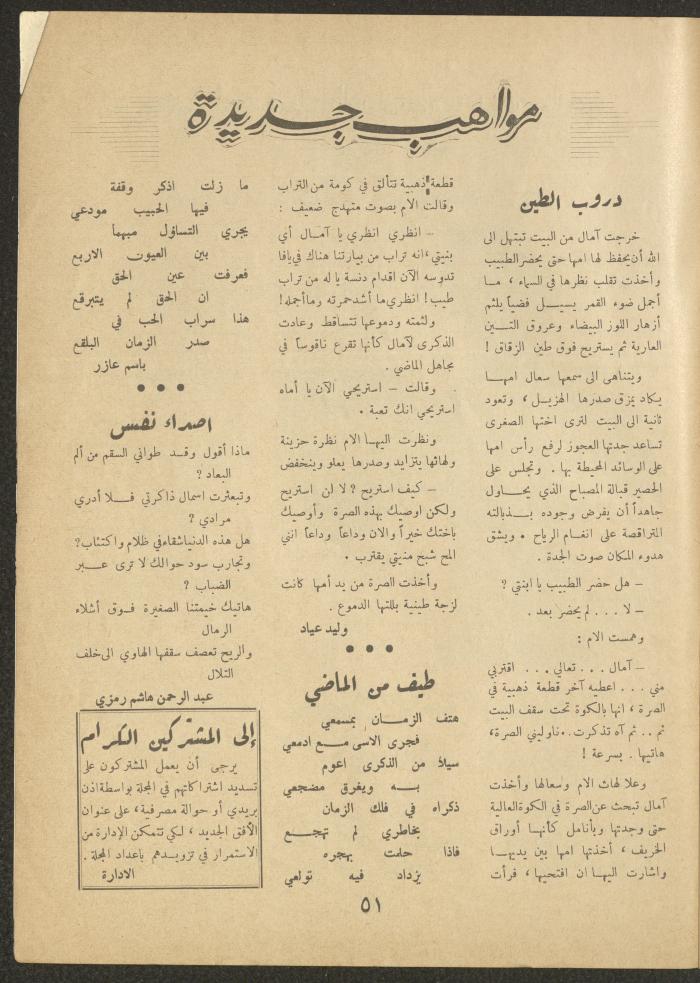 مواهب جديدة
دروب الطين
خرجت آمال من البيت تبتهل الى
الله أن يحفظ لها امها حتى يحضر الطبيب
وأخذت تقلب نظرها في السماء ، مـا
أجمل ضوء القمر يسيــل فضياً يلثم
أزهار اللوز البيضاء وعروق التــين
العارية ثم يستريح فوق طين الزقاق !
ويتناهى الى سمعها سعال امهـا
يكاد يمزق صدرها الهزيـل ، وتعود
ثانية الى البيت لترى اختها الصغرى
تساعد جدتها العجوز لرفع رأس امها
على الوسائد المحيطة بها . وتجلس على
الحصير قبالة المصباح الذي يحـاول
جاهداً أن يفرض وجوده بــذبالته
المتراقصة على انغـام الرياح . ويشق
هدوء المكان صوت الجدة .
– هل حضر الطبيب يا ابنتي ؟
– لا . . . لم يحضر بعد .
وهمست الام :
– آمال . . . تعالي . . . اقتربي
مني . . . اعطيه آخر قطعة ذهبية في
الصرة ، انها بالكوة تحت سقف البيت
ثم . . ثم آه تذكرت . . ناوليني الصرة،
هاتيها . بسرعة !
وعلا لهاث الام وسعالها وأخذت
آمال تبحث عن الصرة في الكوة العالية
حتى وجدتها وبأنامل كأنهـا أوراق
الخريف ، أخذتها امها بين يديهــا
واشارت اليهـا ان افتحيها ، فرأت
قطعة ذهبية تتألق في كومة من التراب
وقالت الام بصوت متهدج ضعيف :
– انظري انظري يا آمـال أي
بنيتي ، انه تراب من بيارتنا هناك في يافا
تدوسه الآن اقدام دنسة يا له من تراب
طيب ! انظري ما أشد حمرته وما أجمله !
ولثمته ودموعها تتساقط وعادت
الذكرى لآمال كأنها تقرع ناقوساً في
مجاهل الماضي .
وقالت – استريحي الآن يا أماه
استريحي انك تعبة .
ونظرت اليهـا الام نظرة حزينة
ولهاثها يتزايد وصدرها يعلو وينخفض
– كيف استريح ؟ لا لن استريح
ولكن اوصيك بهذه الصرة وأوصيك
باختك خيراً والان وداعاً وداعاً انني
المح شبح منيتي يقترب .
وأخذت الصرة من يد أمها كانت
لزجة طينية بللتها الدموع .
وليد عياد
طيف من الماضي
هتف الزمــان بمسمعي
فجرى الاسى مــع ادمعي
سيلاً من الذكرى اعوم
بــه ويغرق مضجعي
ذكراه في فلك الزمان
بخاطري لم تهجــع
فاذا حلمت بهجره
يزداد فيه تولعي
ما زلت اذكر وقفة
فيها الحبيب مودعي
يجري التساؤل مبهما
بين العيون الاربع
فعرفت عين الحق
ان الحق لم يتبرقع
هذا سراب الحب في
صدر الزمان البلقع
باسم عازر
اصداء نفس
ماذا أقول وقـد طواني السقم من ألم
البعاد ؟
وتبعثرت اسمال ذاكرتي فــلا أدري
مرادي ؟
هل هذه الدنيا شقاء في ظلام واكتئاب؟
وتجارب سود حوالك لا ترى عــبر
الضباب ؟
هاتيك خيمتنا الصغيرة فـوق أشلاء
الرمال
والريح تعصف سقفها الهاوي الى خلف
التلال
عبد الرحمن هاشم رمزي
إلى المشتركين الكرام
يرجى أن يعمل المشتركون على
تسديد اشتراكاتهم في المجلة بواسطة اذن
بريدي أو حوالة مصرفية ، على عنوان
الأفق الجديد ، لكي تتمكن الإدارة من
الاستمرار في تزويدهم باعداد المجلة .
الادارة
٥١